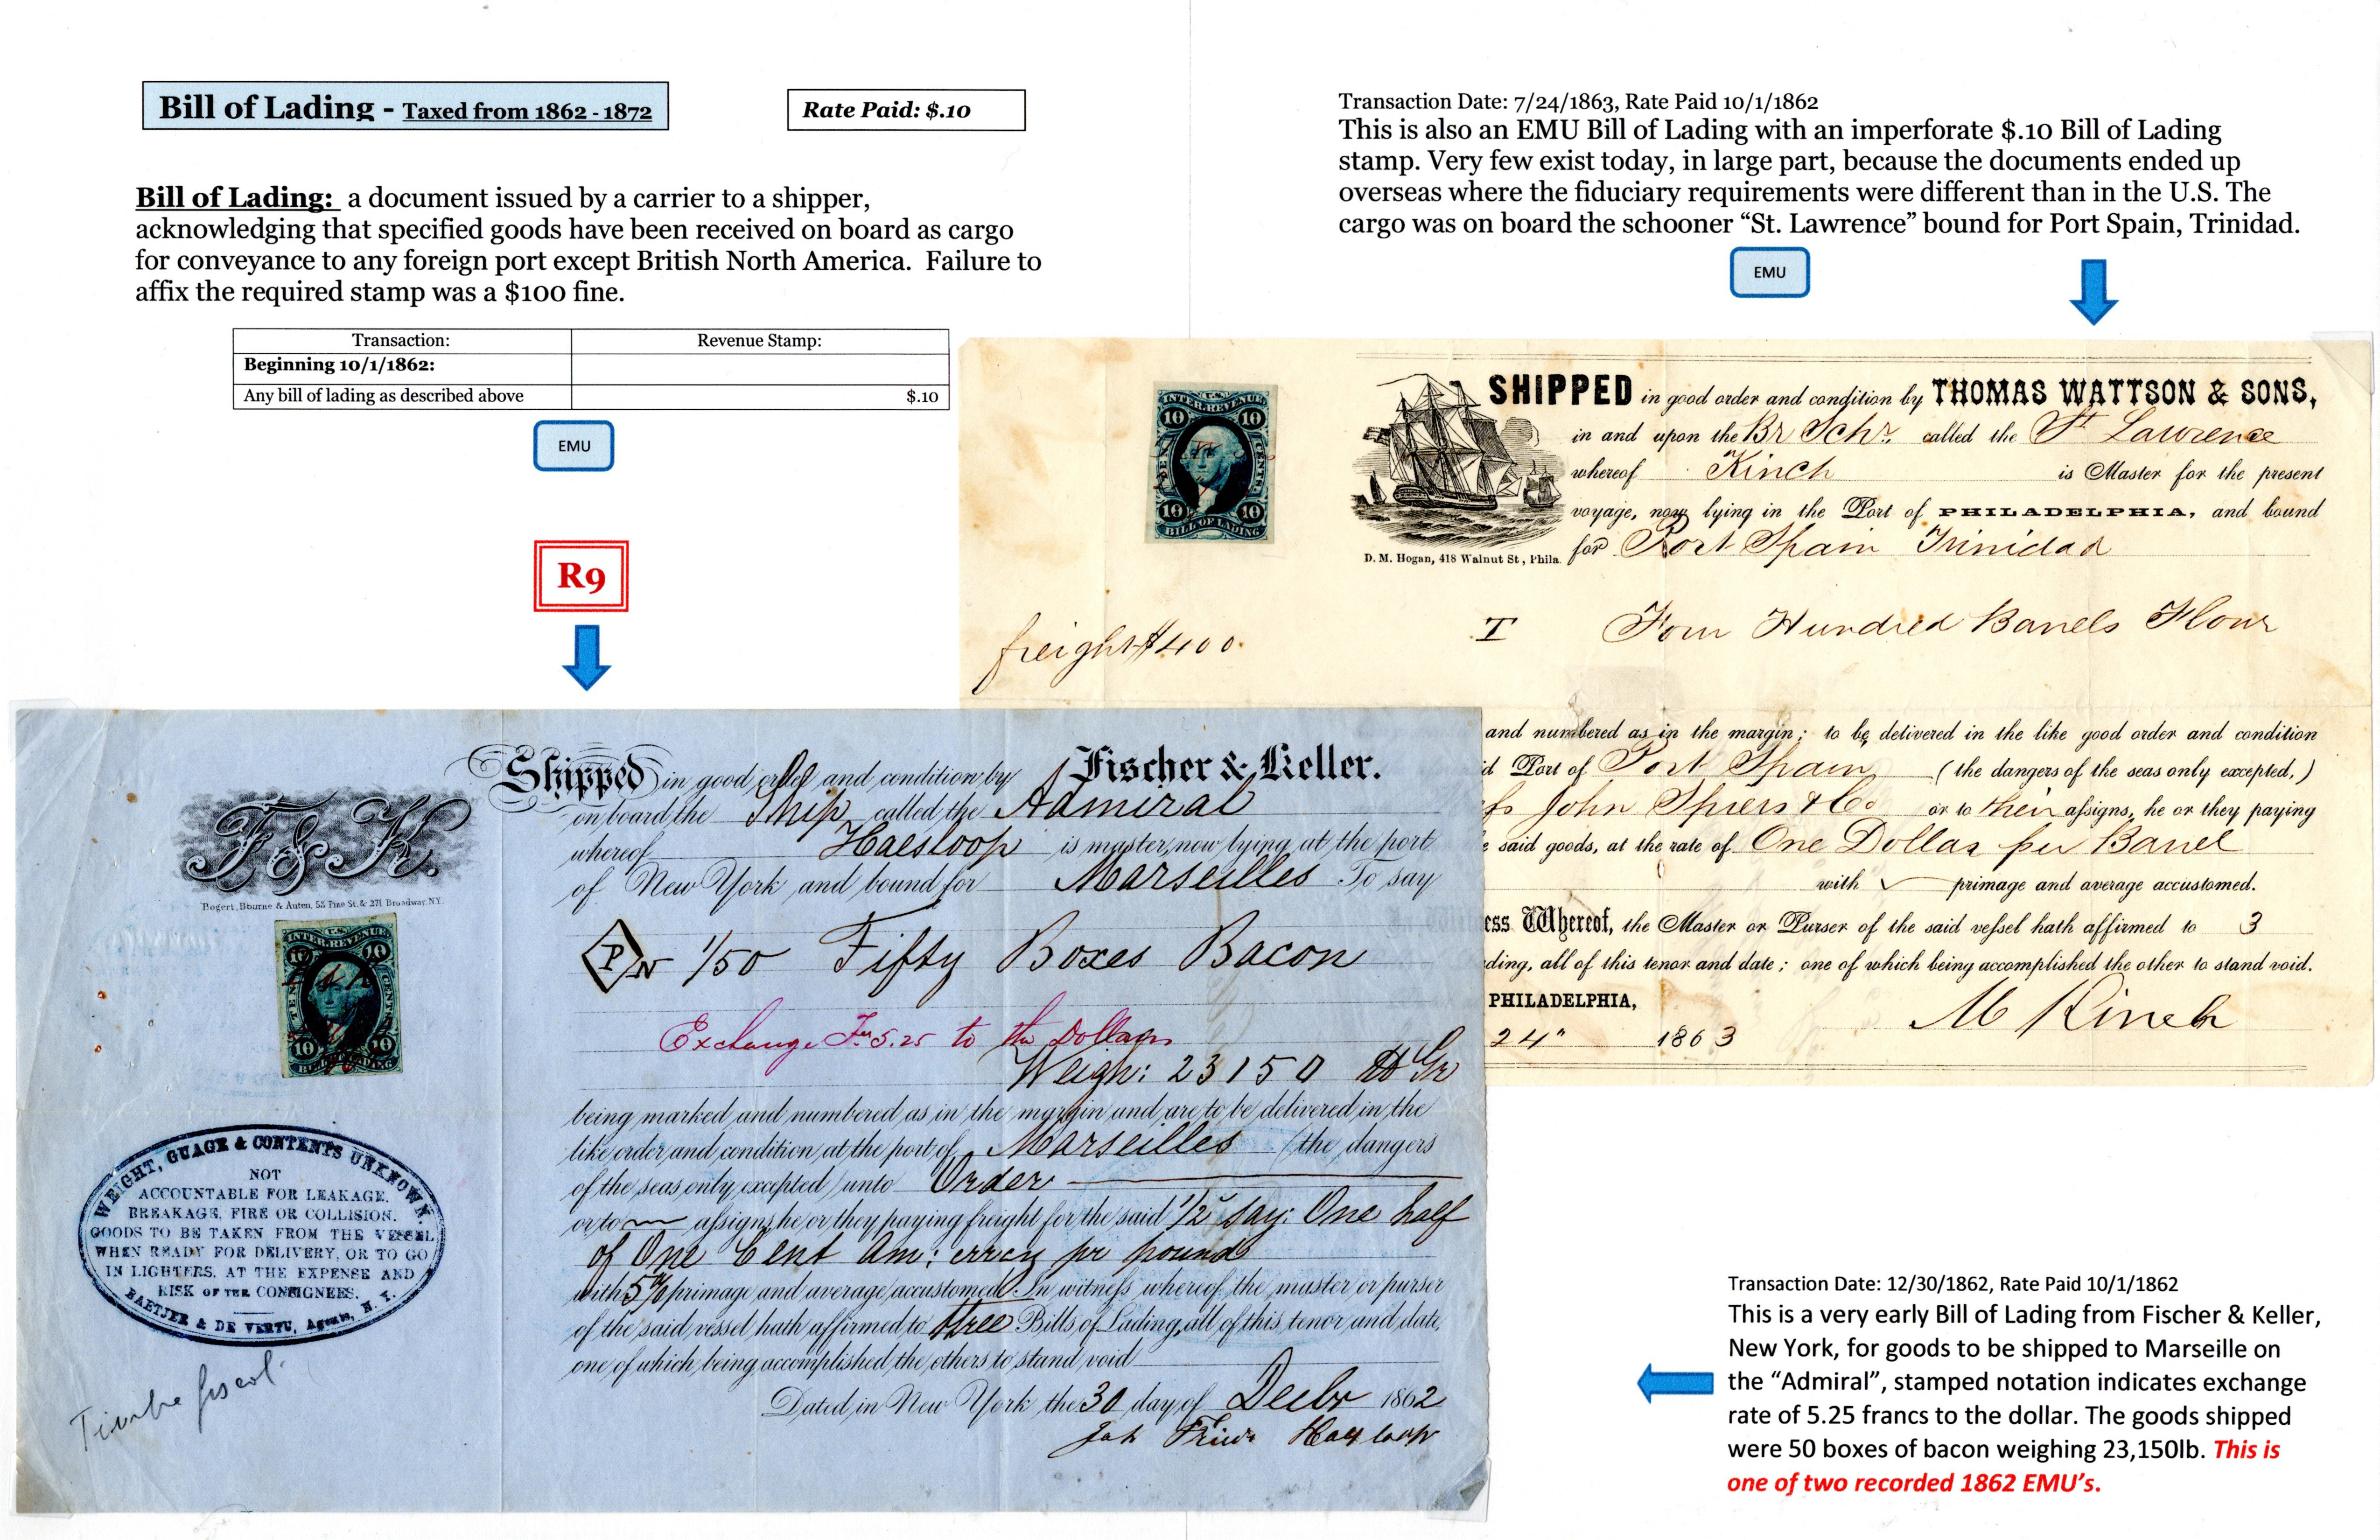 Bill of Lading - Taxed from 1862 - 1872
Rate Paid: $.10
Bill of Lading: a document issued by a carrier to a shipper,
acknowledging that specified goods have been received on board as cargo
for conveyance to any foreign port except British North America. Failure to
affix the required stamp was a $100 fine.
Transaction: Revenue Stamp:
Beginning 10/1/1862:
Any bill of lading as described above $.10
EMU
R9
Transaction Date: 7/24/1863, Rate Paid 10/1/1862
This is also an EMU Bill of Lading with an imperforate $.10 Bill of Lading
stamp. Very few exist today, in large part, because the documents ended up
overseas where the fiduciary requirements were different than in the U.S. The
cargo was on board the schooner “St. Lawrence” bound for Port Spain, Trinidad.
EMU
U.S.
INTER. REVENUE
10 10
TEN CENTS
10 10
BILL OF LADING
SHIPPED in good order and condition by THOMAS WATTSON & SONS,
in and upon the Br Schr. called the St Lawrence
whereof Kinch is Master for the present
voyage, now lying in the Port of PHILADELPHIA, and bound
for Port Spain Trinidad
D. M. Hogan, 418 Walnut St, Phila.
freight $400.
T Four Hundred Barrels Flour
and numbered as in the margin; to be delivered in the like good order and condition
d Port of Port Spain (the dangers of the seas only excepted,)
John Spiers & Co or to their assigns, he or they paying
said goods, at the rate of One Dollar per Barrel
with primage and average accustomed.
ess Whereof, the Master or Purser of the said vessel hath affirmed to 3
ding, all of this tenor and date; one of which being accomplished the other to stand void.
PHILADELPHIA,
24" 1863
M Kinch
F & K.
Bogert, Bourne & Auten, 55 Pine St. & 271 Broadway. N.Y.
U.S.
INTER. REVENUE
10 10
TEN CENTS
10 10
BILL OF LADING
Shipped in good order and condition by Fischer & Keller.
on board the Ship called the Admiral
whereof Haesloop is master, now lying at the port
of New York and bound for Marseilles To say
P N 1/50 Fifty Boxes Bacon
Exchange Frs 5.25 to the Dollar
Weigh: 23150 lb Gr
being marked and numbered as in the margin and are to be delivered in the
like order and condition at the port of Marseilles (the dangers
of the seas only excepted) unto Order
or to assigns, he or they paying freight for the said 1/2 say: One half
of One Cent Am: per pound
with 5% primage and average accustomed. In witness whereof, the master or purser
of the said vessel hath affirmed to three Bills of Lading, all of this tenor and date,
one of which being accomplished, the others to stand void
Dated in New York the 30 day of Decbr 1862
Haesloop
WEIGHT, GUAGE & CONTENTS UNKNOWN.
NOT
ACCOUNTABLE FOR LEAKAGE.
BREAKAGE, FIRE OR COLLISION.
GOODS TO BE TAKEN FROM THE VESSEL
WHEN READY FOR DELIVERY, OR TO GO
IN LIGHTERS, AT THE EXPENSE AND
RISK OF THE CONSIGNEES.
BAETJER & DE VERTU, Agents, N. Y.
Timbre fiscal
Transaction Date: 12/30/1862, Rate Paid 10/1/1862
This is a very early Bill of Lading from Fischer & Keller,
New York, for goods to be shipped to Marseille on
the “Admiral”, stamped notation indicates exchange
rate of 5.25 francs to the dollar. The goods shipped
were 50 boxes of bacon weighing 23,150lb. This is
one of two recorded 1862 EMU’s.